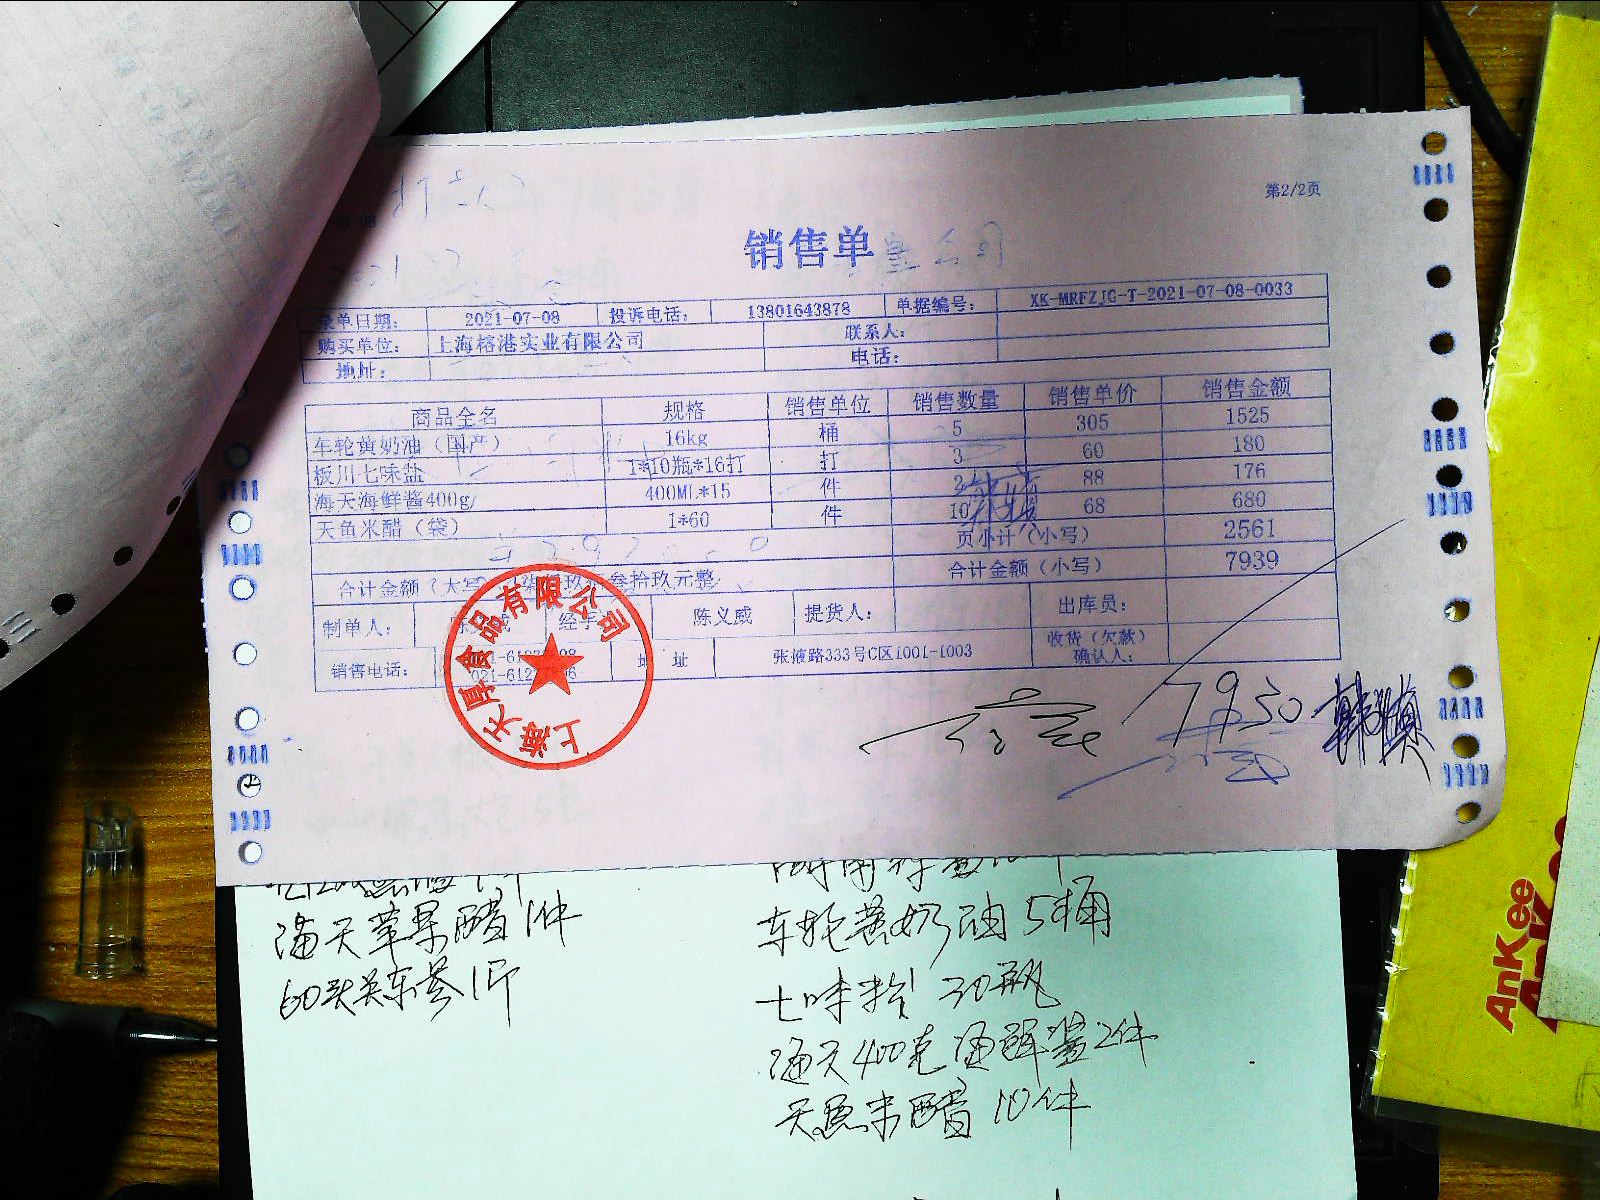 第2/2页
销售单
录单日期: 2021-07-08 投诉电话: 13801643878 单据编号: XK-MRFZJG-T-2021-07-08-0033
购买单位: 上海榕港实业有限公司 联系人:
地址: 电话:
商品全名 规格 销售单位 销售数量 销售单价 销售金额
车轮黄奶油（国产） 16kg 桶 5 305 1525
板川七味盐 1*10瓶*16打 打 3 60 180
海天海鲜酱400g/ 400ML*15 件 2 88 176
天鱼米醋（袋） 1*60 件 10 68 680
页小计（小写） 2561
合计金额（大写） 叁拾玖元整 合计金额（小写） 7939
制单人: 经手 陈义威 提货人: 出库员:
销售电话: 地 址 张掖路333号C区1001-1003 收货（欠款）确认人:
上海天厚食品有限公司
7930
海天苹果醋1件
60头关东参1斤
车轮黄奶油5桶
七味粉 30瓶
海天400克海鲜酱2件
天鱼米醋10件
AnKee